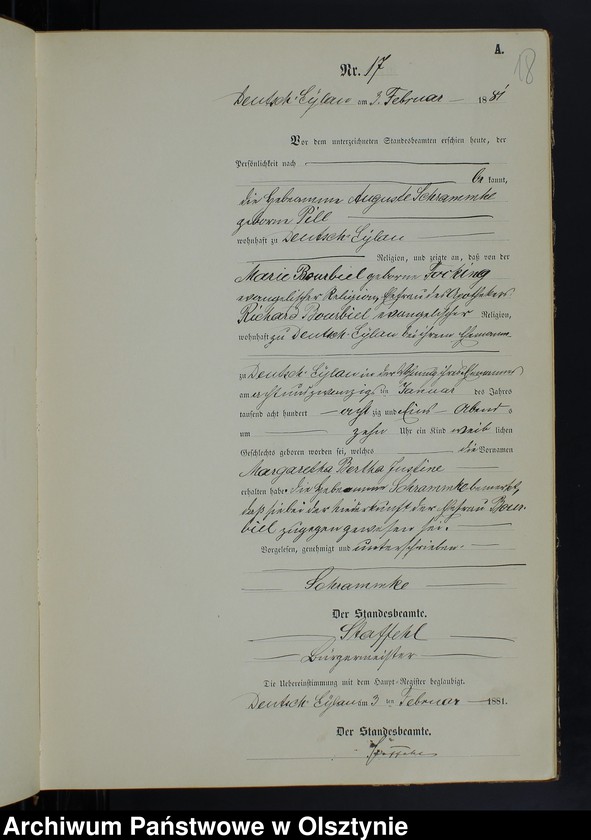 A.
18
Nr. 17
Deutsch-Eylau am 3. Februar 1881
Vor dem unterzeichneten Standesbeamten erschien heute, der
Persönlichkeit nach
be kannt,
die Hebeamme Auguste Schrammke
geborne Pill
wohnhaft zu Deutsch-Eylau
Religion, und zeigte an, daß von der
Marie Bourbiel geborne Focking
evangelischer Religion, Ehefrau des Apothekers
Richard Bourbiel evangelischer Religion,
wohnhaft zu Deutsch-Eylau bei ihrem Ehemanne
zu Deutsch-Eylau in der Wohnung ihres Ehemannes
am acht und zwanzigsten Januar des Jahres
tausend acht hundert acht zig und Eins Abends
um zehn Uhr ein Kind weib lichen
Geschlechts geboren worden sei, welches die Vornamen
Margaretha Bertha Justine
erhalten habe. Die Hebeamme Schrammke bemerkt,
daß sie bei der Niederkunft der Ehefrau Bour-
biel zugegen gewesen sei.
Vorgelesen, genehmigt und unterschrieben.
Schrammke
Der Standesbeamte.
Staffehl
Bürgermeister
Die Uebereinstimmung mit dem Haupt-Register beglaubigt.
Deutsch-Eylau am 3 ten Februar 1881.
Der Standesbeamte.
Staffehl
Archiwum Państwowe w Olsztynie